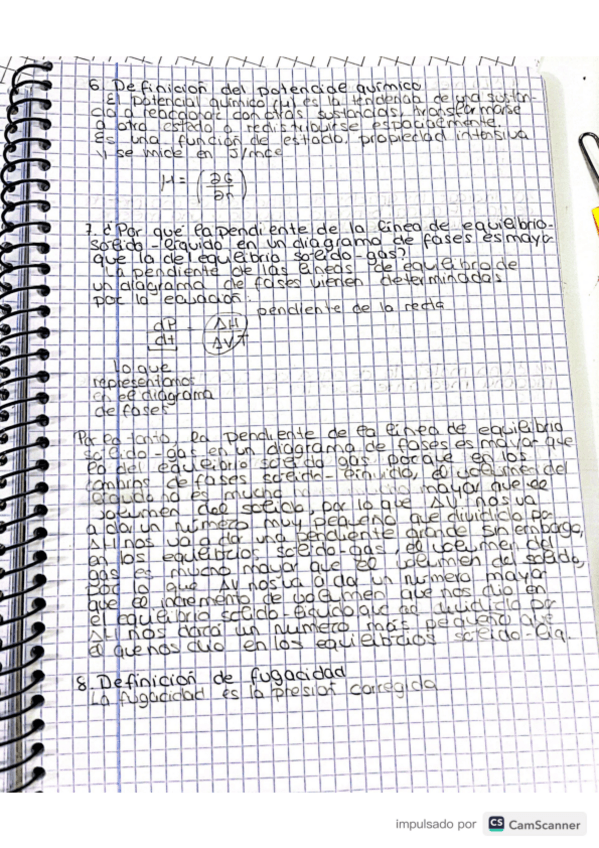 6. Definición del potencial químico
El potencial químico (μ) es la tendencia de una sustan-
cia a reaccionar con otras sustancias, transformarse
a otro estado o redistribuirse espacialmente.
Es una función de estado, propiedad intensiva
y se mide en J/mol
μ = (∂G/∂n)
7. ¿Por qué la pendiente de la línea de equilibrio
sólido-líquido en un diagrama de fases es mayor
que la del equilibrio sólido-gas?
La pendiente de las líneas de equilibrio de
un diagrama de fases vienen determinadas
por la ecuación:
pendiente de la recta
dP/dt = ΔH/ΔVT
lo que
representamos
en el diagrama
de fases
Por lo tanto, la pendiente de la línea de equilibrio
sólido-gas en un diagrama de fases es mayor que
la del equilibrio sólido gas porque en los
cambios de fases sólido-líquido, el volumen del
líquido no es mucho mayor que el
volumen del sólido, por lo que ΔV nos va
a dar un número muy pequeño que dividido por
ΔH nos va a dar una pendiente grande sin embargo,
en los equilibrios sólido-gas, el volumen del
gas es mucho mayor que el volumen del sólido,
por lo que ΔV nos va a dar un número mayor
que el incremento de volumen que nos dio en
el equilibrio sólido-líquido que al dividirlo por
ΔH nos dará un número más pequeño que
el que nos dio en los equilibrios sólido-líq.
8. Definición de fugacidad
La fugacidad es la presión corregida
impulsado por CS CamScanner